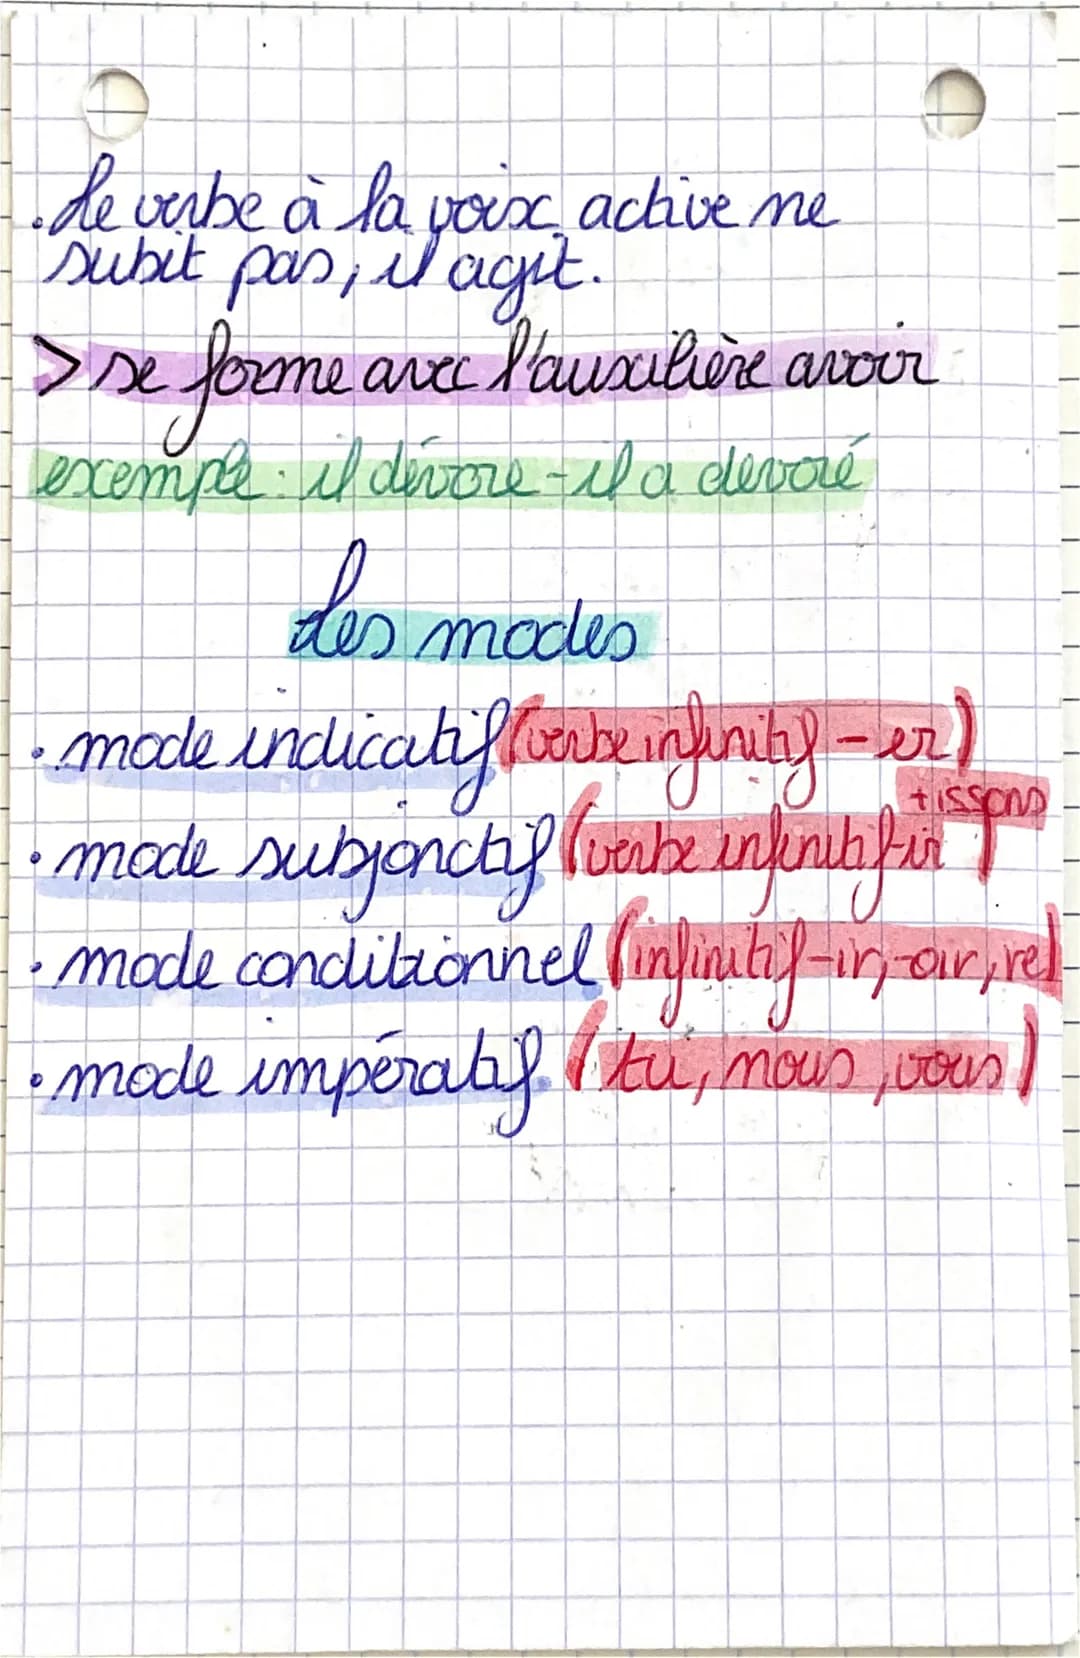 . Le verbe à la voix active ne
subit pas, il agit.
> se forme avec l'auxilière avoir
exemple : il dévore - il a devoré
Les modes
. mode indicatif (verbe infinitif - er)
. mode subjonctif (verbe infinitif -ir + issons)
. mode conditionnel (infinitif -ir, -oir, re)
. mode impératif (tu, nous, vous)